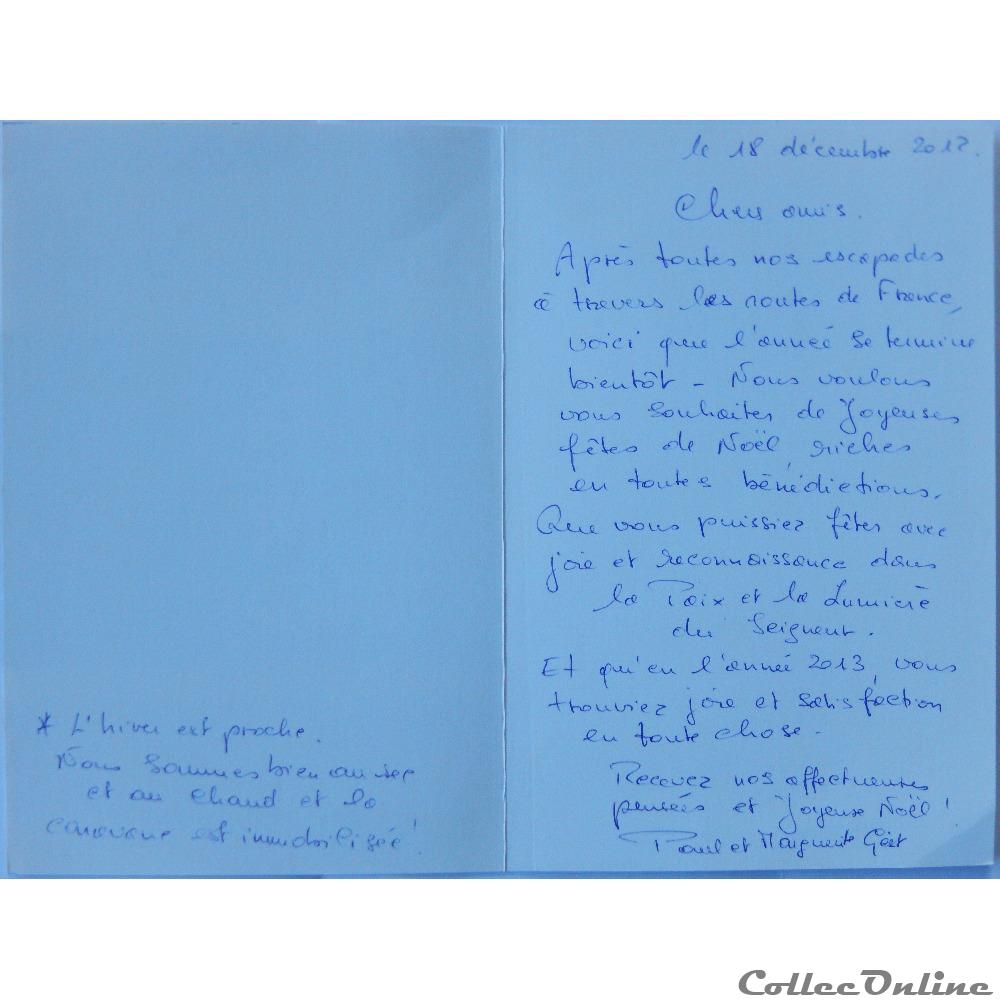 * L'hiver est proche.
Nous sommes bien au sec
et au chaud et la
caravane est immobilisée !
le 18 décembre 2012.
Chers amis.
Après toutes nos escapades
à travers les routes de France,
voici que l'année se termine
bientôt - Nous voulons
vous souhaiter de Joyeuses
fêtes de Noël, riches
en toutes bénédictions.
Que vous puissiez fêter avec
joie et reconnaissance dans
la Paix et la Lumière
du Seigneur.
Et qu'en l'année 2013, vous
trouviez joie et satisfaction
en toute chose.
Recevez nos affectueuses
pensées et Joyeux Noël !
Paul et Marguerite
CollecOnline